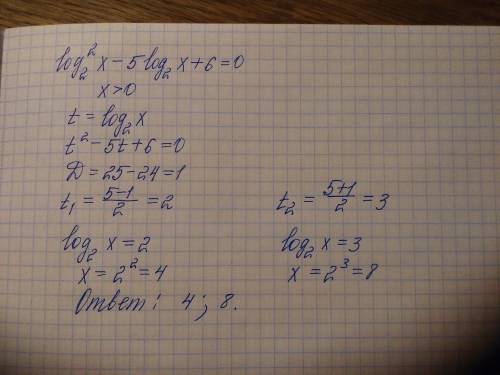 log₂²x − 5log₂x + 6 = 0
x>0
t = log₂x
t² − 5t + 6 = 0
D = 25 − 24 = 1
t₁ = (5−1)/2 = 2
t₂ = (5+1)/2 = 3
log₂x = 2
log₂x = 3
x = 2² = 4
x = 2³ = 8
Ответ: 4; 8.